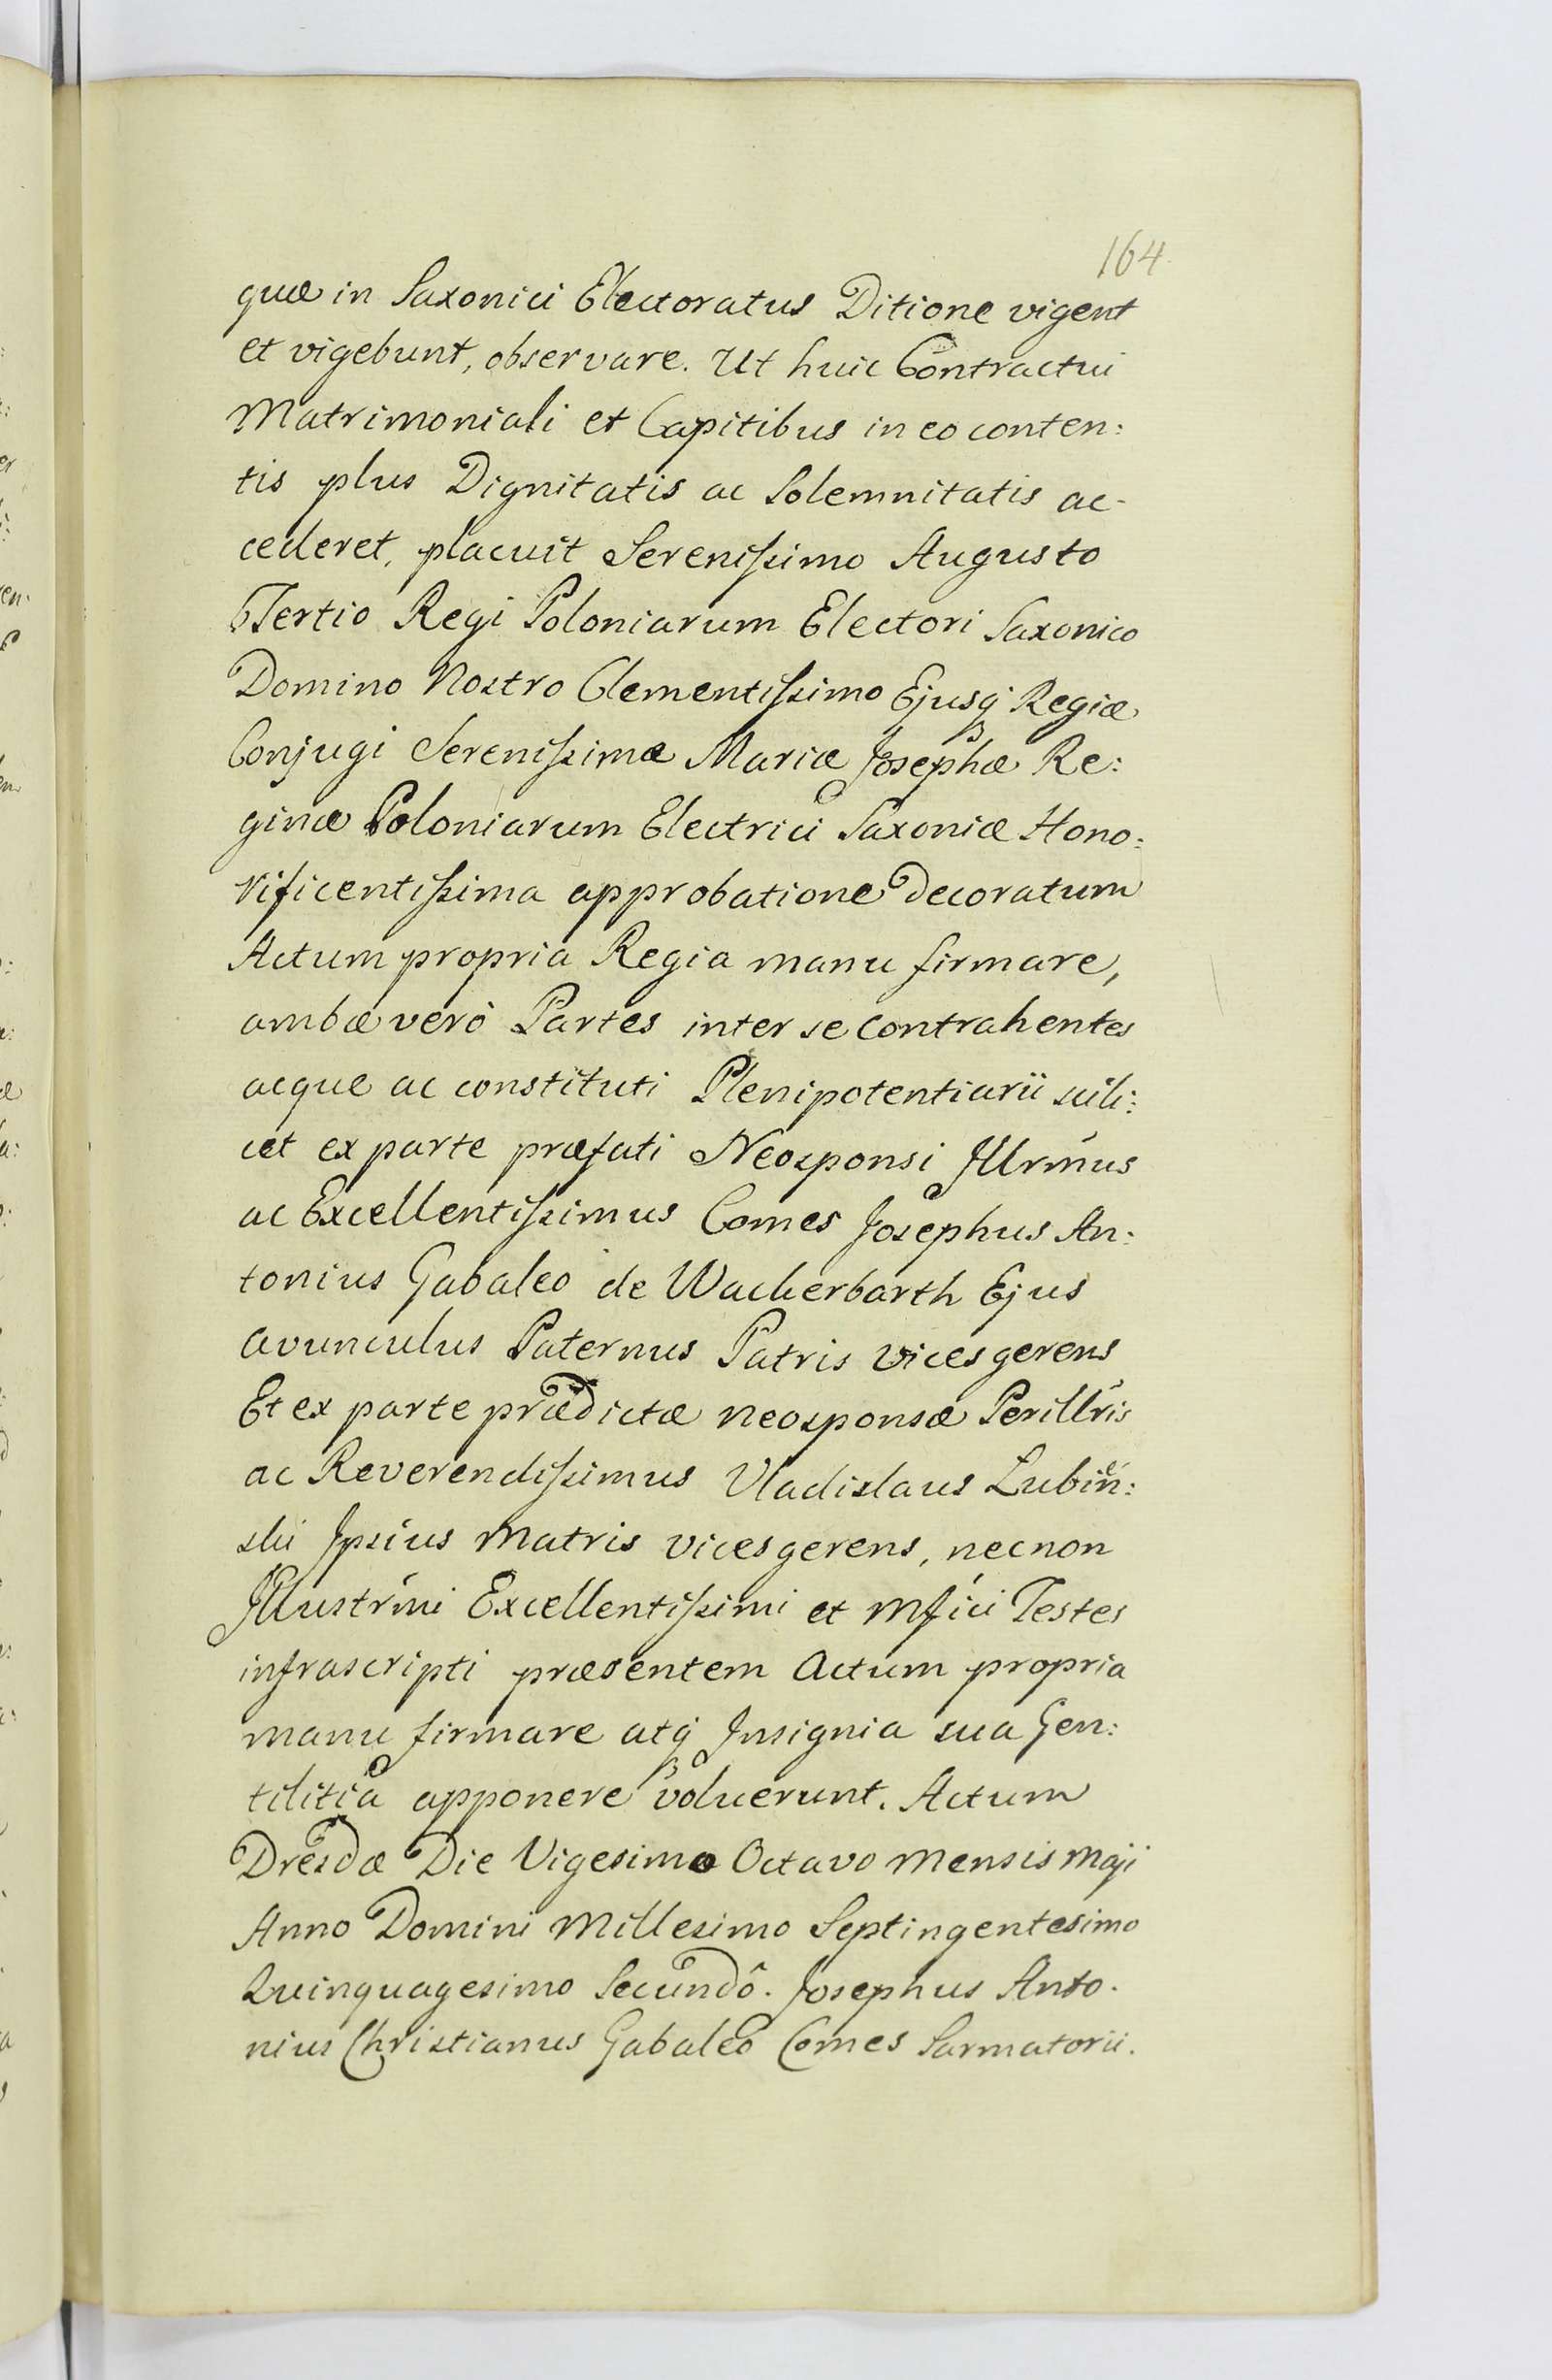 164
quæ in Saxonici Electoratus Ditione vigent
et vigebunt, observare. Ut huic Contractui
Matrimoniali et Capitibus in eo conten:
tis plus Dignitatis ac Solemnitatis ac-
cederet, placuit Serenissimo Augusto
Tertio Regi Poloniarum Electori Saxonico
Domino Nostro Clementissimo Ejusq; Regiæ
Conjugi Serenissimæ Mariæ Josephæ Re:
ginæ Poloniarum Electrici Saxoniæ Hono:
rificentissima approbatione Decoratum
Actum propria Regia manu firmare,
ambæ verò Partes inter se contrahentes
æque ac constituti Plenipotentiarii scili:
cet ex parte præfati Neosponsi Jllrmus
ac Excellentissimus Comes Josephus An:
tonius Gabaleo de Wackerbarth Ejus
avunculus Paternus Patris vices gerens
Et ex parte prædictæ neosponsæ Perillris
ac Reverendissimus Vladislaus Lubień:
ski Jpsius Matris vices gerens, necnon
Jllustrmi Excellentissimi et Mfici Testes
infrascripti præsentem Actum propria
manu firmare atq; Jnsignia sua Gen:
tilitia apponere voluerunt. Actum
Dresdæ Die Vigesima Octavo Mensis Maji
Anno Domini Millesimo Septingentesimo
Quinquagesimo Secundô. Josephus Anto.
nius Christianus Gabaleo Comes Sarmatorii.